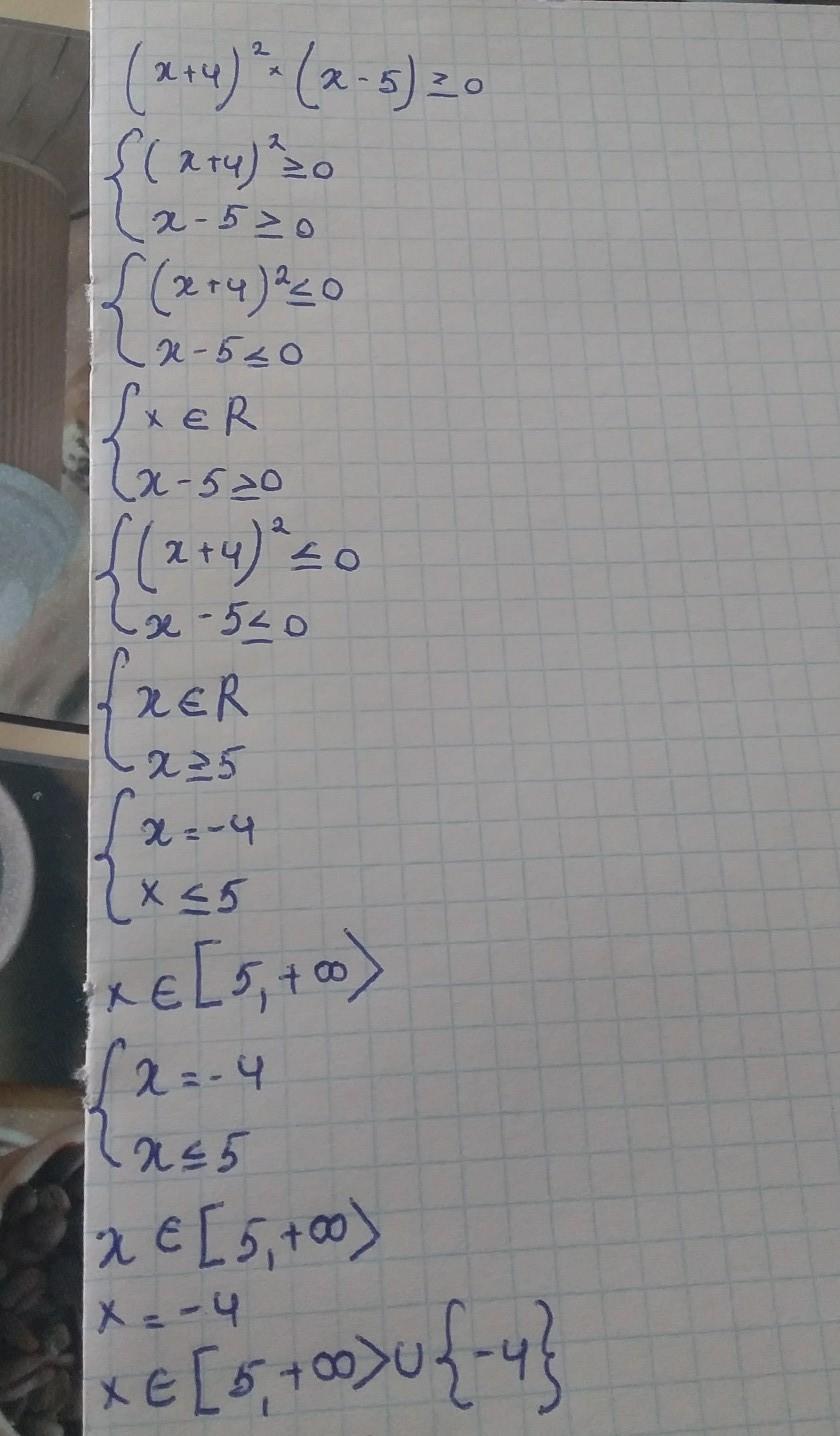 (x+4)²×(x-5)≥0
{(x+4)²≥0
x-5≥0
{(x+4)²≤0
x-5≤0
{x∈R
x-5≥0
{(x+4)²≤0
x-5≤0
{x∈R
x≥5
{x=-4
x≤5
x∈[5,+∞⟩
{x=-4
x≤5
x∈[5,+∞⟩
x=-4
x∈[5,+∞⟩∪{-4}